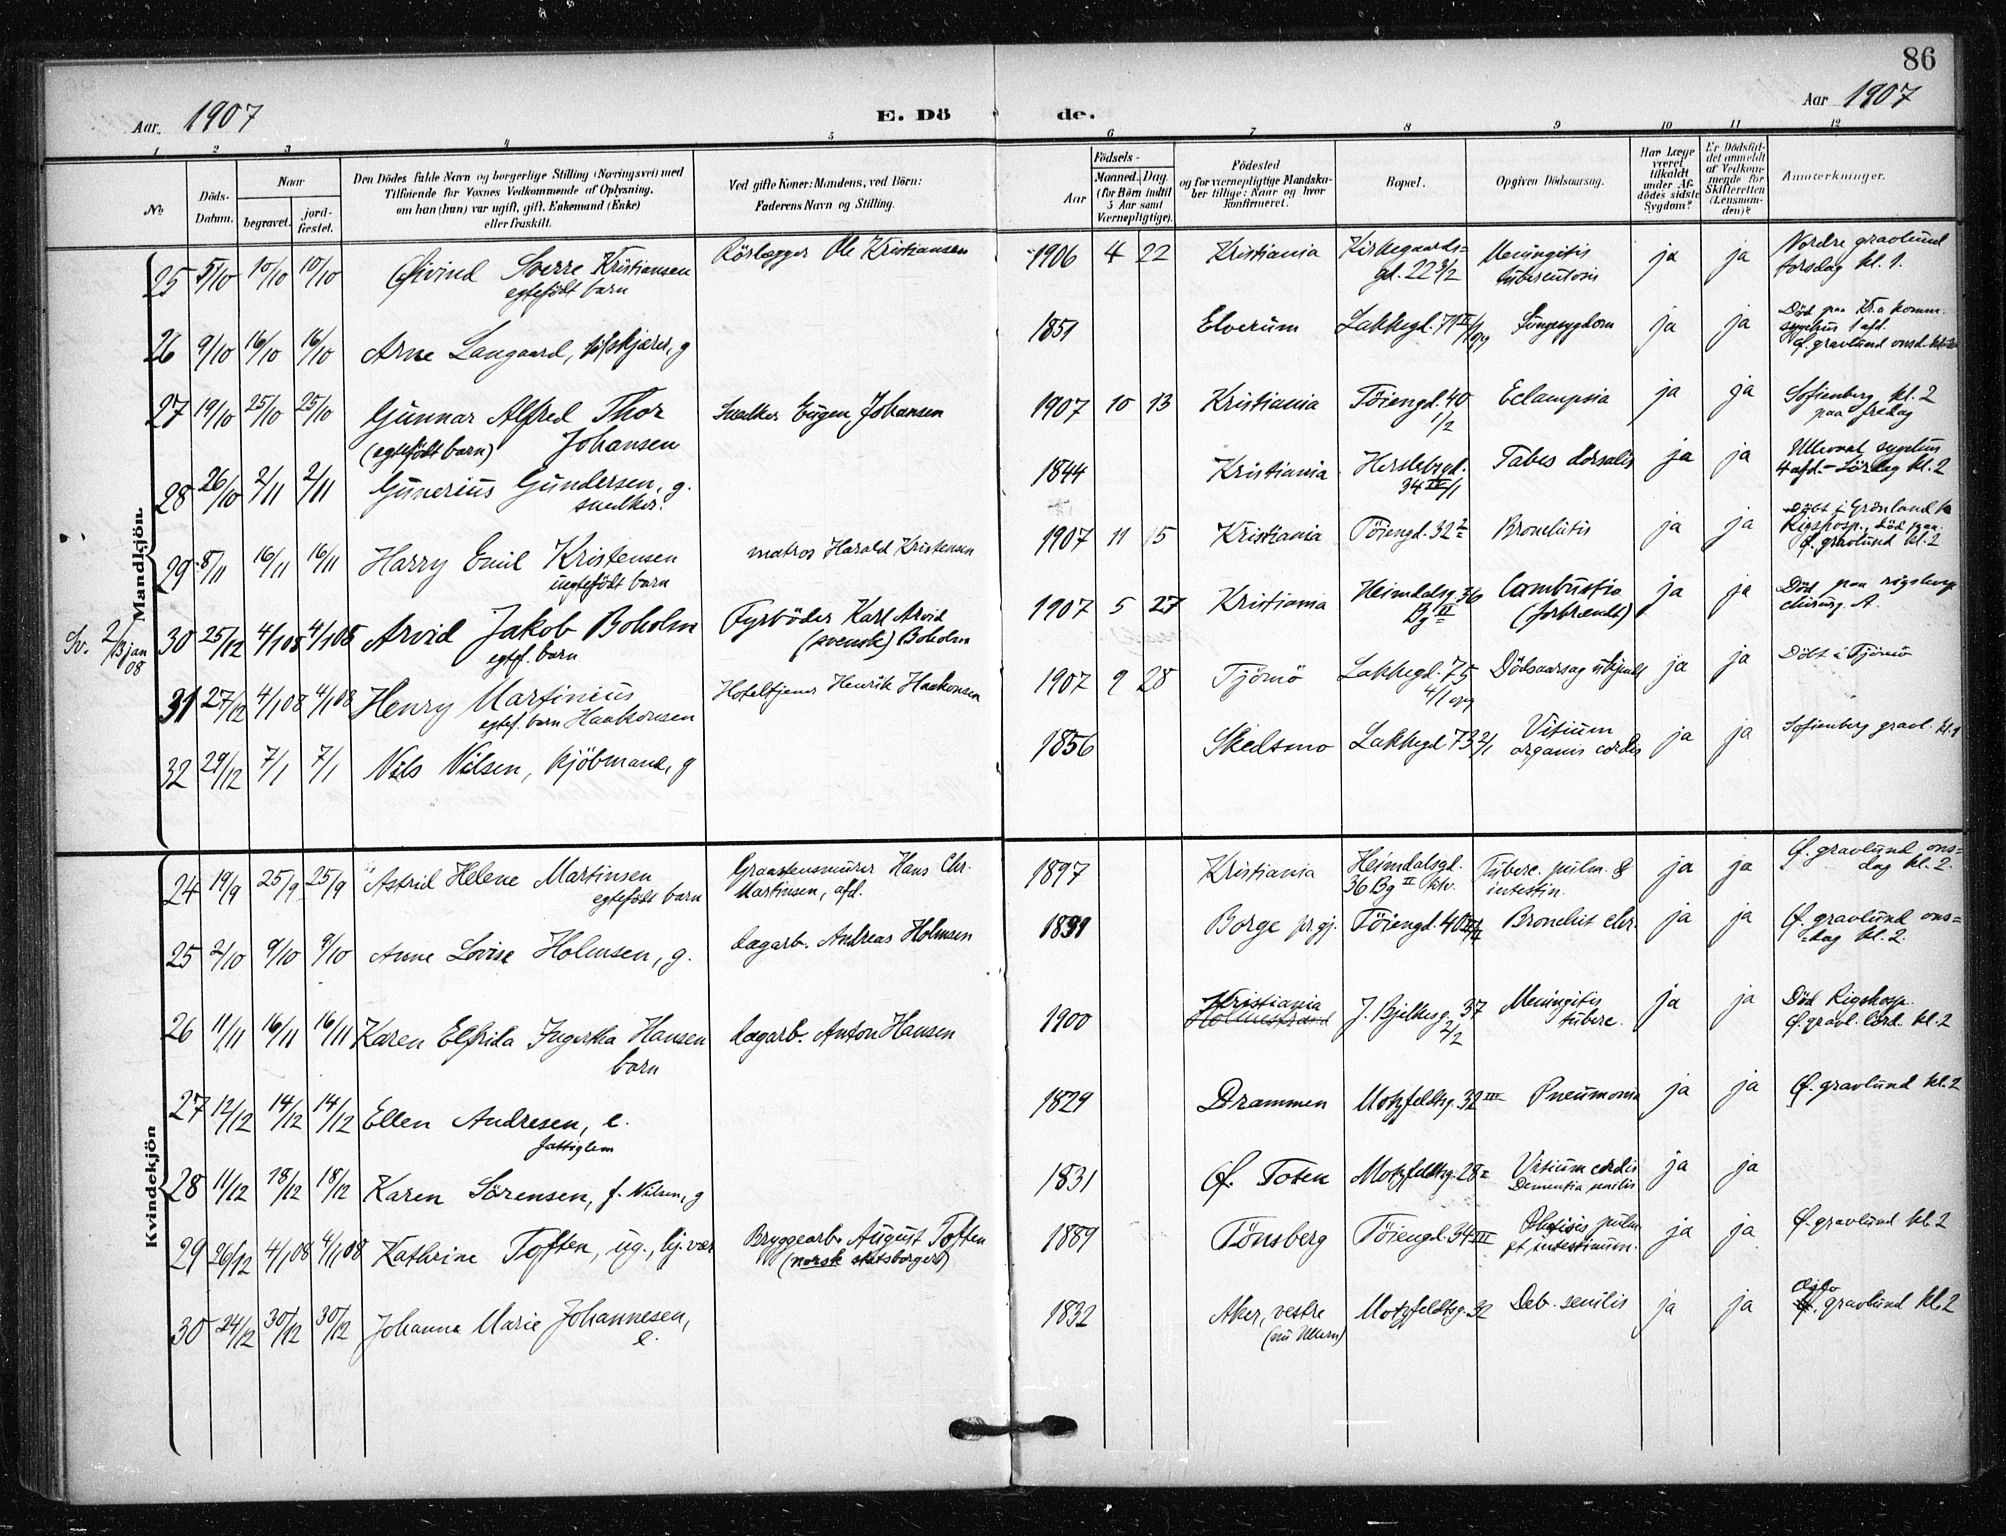 86
Aar 1907 E. Dö de. Aar 1907
1 2 3 4 5 6 7 8 9 10 11 12
No Döds-Datum. Naar begravet. jord-fæstet.
Den Dödes fulde Navn og borgerlige Stilling (Næringsvei) med
Tilföiende for Voxnes Vedkommende af Oplysning,
om han (hun) var ugift, gift, Enkemand (Enke)
eller fraskilt.
Ved gifte Koner: Mandens, ved Börn:
Faderens Navn og Stilling.
Födsels-
Aar Maaned. Dag.
(for Börn indtil
5 Aar samt
Værnepligtige).
Födested
og for værnepligtige Mandska-
ber tillige: Naar og hvor
konfirmeret.
Bopæl.
Opgiven Dödsaarsag.
Har Læge
været
tilkaldt
under Af-
dödes sidste
Sygdom?
Er Dödsfal-
det anmeldt
af Vedkom-
mende for
Skifteretten
(Lensman-
den)?
Anmærkninger.
Mandkjön.
25 5/10 10/10 10/10 Øivind Sverre Kristiansen Rörlægger Ole Kristiansen 1906 4 22 Kristiania Kirkegaards= Meningitis ja ja Nordre gravlund
egtefödt barn gd. 22 3/2 tuberculosis torsdag kl. 1.
26 9/10 16/10 16/10 Arne Langaard, g 1851 Elverum Lakkegd. 71 II/1 opg ja ja Død paa Kr.a komm.
sygehus 1 afd.
Ø. gravlund onsd.
27 19/10 25/10 25/10 Gunnar Alfred Thor Snedker Eugen Johansen 1907 10 13 Kristiania Töiengd. 40 Eclampsia ja ja Sofienberg kl. 2
(egtefödt barn) Johansen 1/2 paa fredag
28 26/10 2/11 2/11 Gunerius Gundersen, g. 1844 Kristiania Herslebsgd. Tabes dorsalis ja ja Ullevaal sygehus
snedker. 34 IV/1 4 afd - Lördag kl. 2
29 8/11 16/11 16/11 Harry Emil Kristensen matros Harald Kristensen 1907 11 5 Kristiania Töiengd. 32 Bronchitis ja ja Döbt i Grönland k
uegtefödt barn Rigshosp., död paa
Ø. gravlund kl. 2
Sv. 2/3 jan 08
30 25/12 4/1 08 4/1 08 Arvid Jakob Boholm Fyrböder Karl Arvid 1907 5 27 Kristiania Heimdalsg 36 Combustio ja ja Död paa rigshosp
egtef. barn (svensk) Boholm Bg II (forbrændt) chirurg. A.
31 27/12 4/1 08 4/1 08 Henry Martinius Hoteltjener Henrik Haakonsen 1907 9 28 Tjömö Lakkegd. 75 Dödsaarsag ubekjendt ja ja Döbt i Tjömö
egtef. barn Haakonsen 4/1 opg
32 29/12 7/1 7/1 Nils Nilsen, kjöbmand, g 1856 Skedsmo Lakkegd 73 2/1 Vitium ja ja Sofienberg gravl. kl. 1
organis cordis
Kvindekjön
24 19/9 25/9 25/9 Astrid Helene Martinsen Graastensmurer Hans Chr. 1897 Kristiania Heimdalsgd. Tuberc. pulm. & ja ja Ø. gravlund ons=
egtefödt barn Martinsen, afd. 36 Bg II intestin. dag kl. 2.
25 2/10 9/10 9/10 Anne Lovise Holmsen, g. dagarb. Andreas Holmsen Borge pr. gj. Töiengd. 40 Bronchit chr. ja ja Ø. gravlund ons=
dag kl. 2.
26 11/11 16/11 16/11 Karen Elfrida Ingertha Hansen dagarb. Anton Hansen 1900 Kristiania J. Bjelkesg. 37 Meningitis ja ja Död Rigshosp.
barn Holmestrand 2/2 tuberc. Ø. gravl. lörd. kl. 2
27 12/12 14/12 14/12 Ellen Andresen, e. 1829 Drammen Motzfeldtsg. 32 III Pneumonia ja ja Ø. gravlund kl. 2
fattiglem
28 11/12 18/12 18/12 Karen Sörensen, f. Nilsen, g 1831 Ø. Toten Motzfeldtsg. 28 Vitium cordis ja ja
Dementia senilis
29 26/12 4/1 08 4/1 08 Kathrine Toften, ug., hj. vær Bryggearb. August Toften 1889 Tönsberg Töiengd. 34 III Phtisis pulm ja ja Ø. gravlund kl. 2
(norsk statsborger) et intestinum.
30 24/12 30/12 30/12 Johanne Marie Johannesen, 1832 Aker, vestre Motzfeldtsg. 32 Deb. senilis ja ja gravlund kl. 2
e. (nu Ullern)